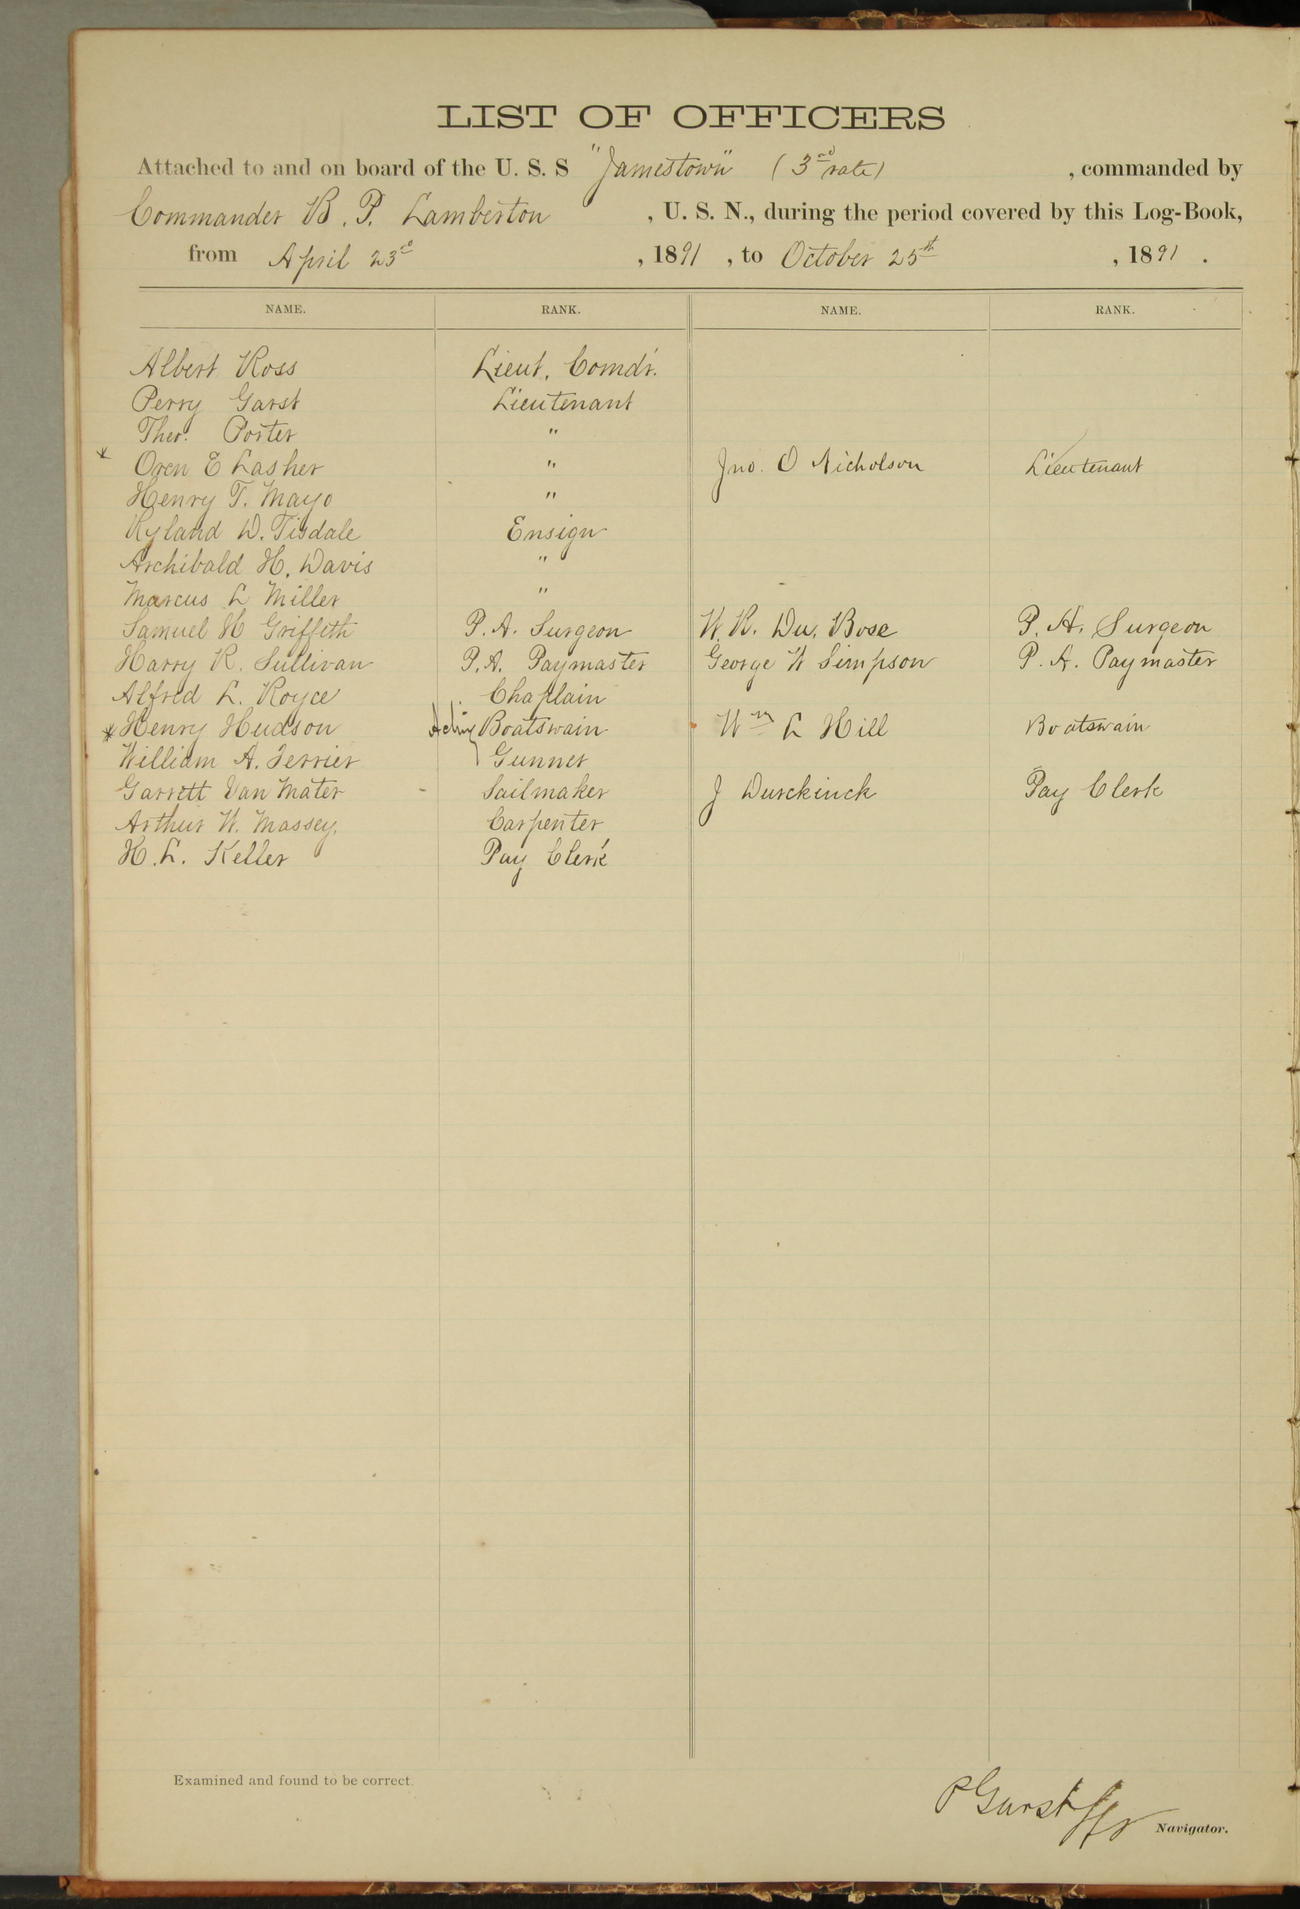 LIST OF OFFICERS
Attached to and on board of the U. S. S "Jamestown" (3rd rate) , commanded by
Commander B. P. Lamberton , U. S. N., during the period covered by this Log-Book,
from April 23d , 1891 , to October 25th , 1891 .
NAME. RANK. NAME. RANK.
Albert Ross Lieut. Comdr.
Perry Garst Lieutenant
Theo. Porter "
* Oren E Lasher " Jno. O Nicholson Lieutenant
Henry T. Mayo "
Ryland D. Tisdale Ensign
Archibald H. Davis "
Marcus L Miller "
Samuel H Griffith P. A. Surgeon W. R. Du. Bose P. A. Surgeon
Harry R. Sullivan P. A. Paymaster George W Simpson P. A. Paymaster
Alfred L. Royce Chaplain
* Henry Hudson Acting Boatswain Wm L Hill Boatswain
William A. Ferrier Gunner
Garrett Van Mater Sailmaker J Durckinck Pay Clerk
Arthur W. Massey. Carpenter
H. L. Keller Pay Clerk
Examined and found to be correct.
P Garst
Navigator.